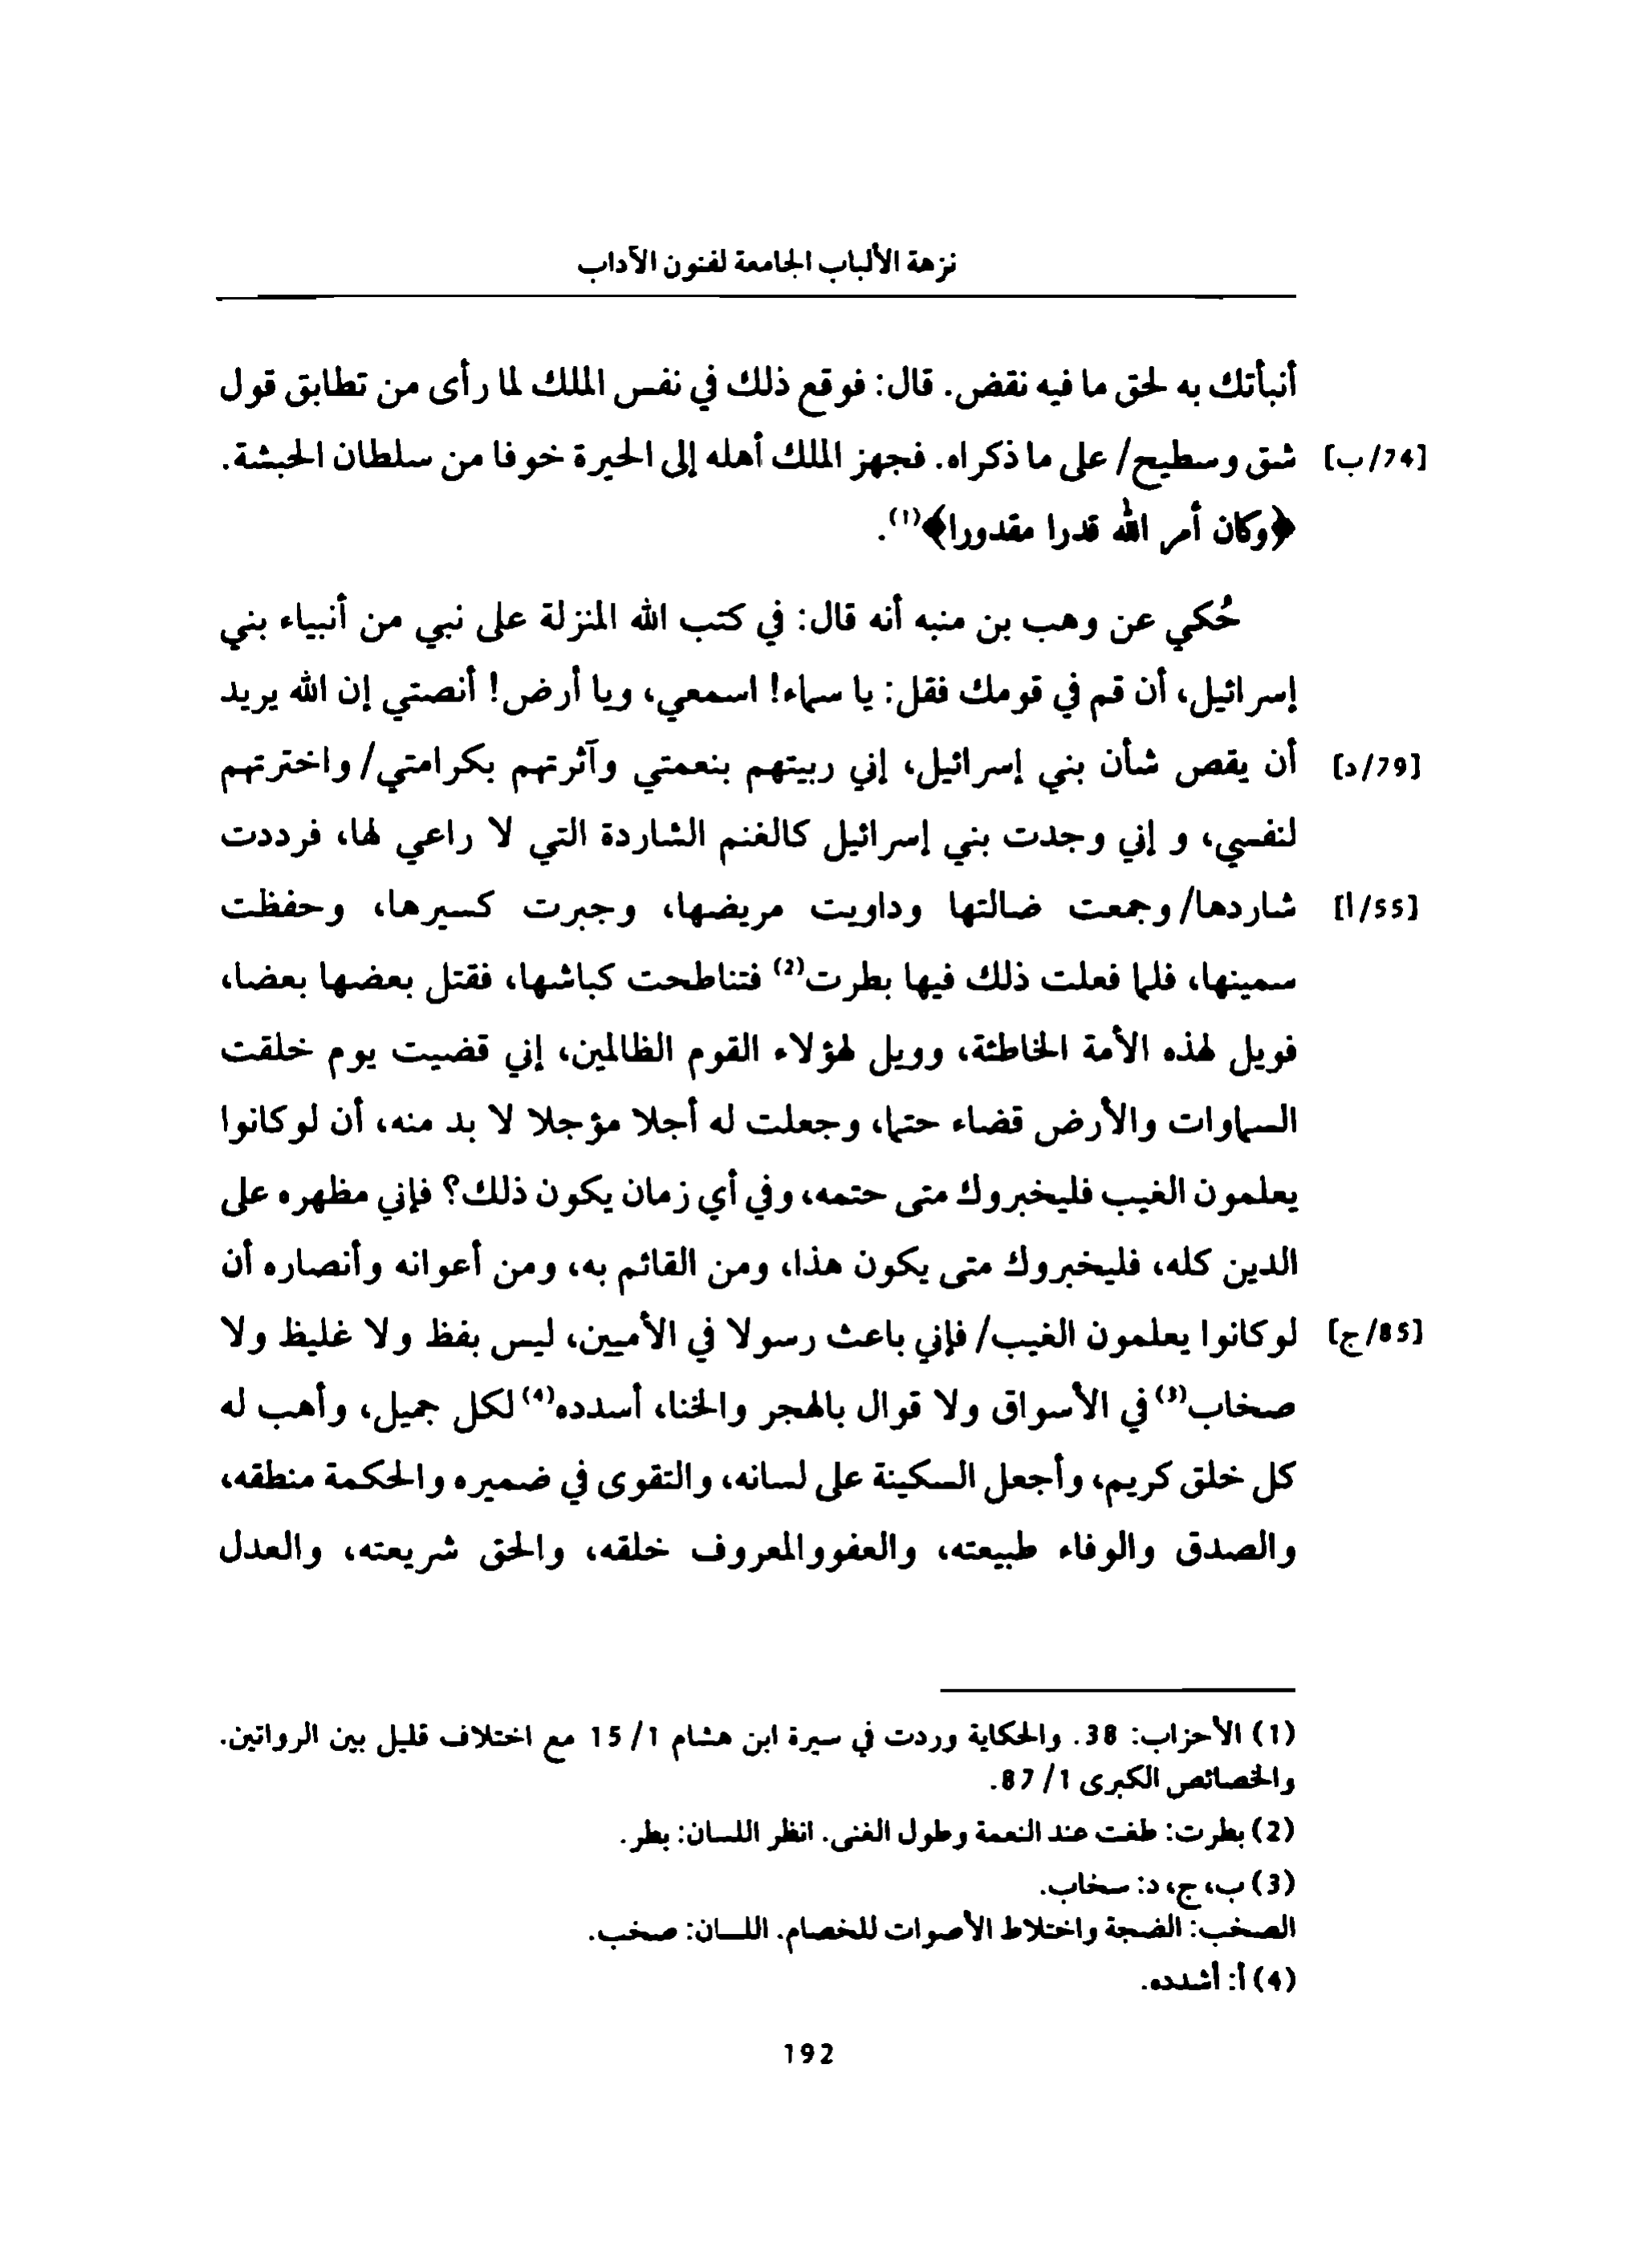 نزهة الألباب الجامعة لفنون الآداب
أنبأتك به لحق ما فيه نقض. قال: فوقع ذلك في نفس الملك لما رأى من تطابق قول
[74/ب] شق وسطيح/ على ما ذكراه. فجهز الملك أهله إلى الحيرة خوفا من سلطان الحبشة.
﴿وكان أمر الله قدرا مقدورا﴾(1).
حُكي عن وهب بن منبه أنه قال: في كتب الله المنزلة على نبي من أنبياء بني
إسرائيل، أن قم في قومك فقل: يا سماء! اسمعي، ويا أرض! أنصتي إن الله يريد
[79/د] أن يقص شأن بني إسرائيل، إني ربيتهم بنعمتي وآثرتهم بكرامتي/ واخترتهم
لنفسي، و إني وجدت بني إسرائيل كالغنم الشاردة التي لا راعي لها، فرددت
[55/أ] شاردها/ وجمعت ضالتها وداويت مريضها، وجبرت كسيرها، وحفظت
سمينها، فلما فعلت ذلك فيها بطرت(2) فتناطحت كباشها، فقتل بعضها بعضا،
فويل لهذه الأمة الخاطئة، وويل لهؤلاء القوم الظالمين، إني قضيت يوم خلقت
السماوات والأرض قضاء حتما، وجعلت له أجلا مؤجلا لا بد منه، أن لو كانوا
يعلمون الغيب فليخبروك متى حتمه، وفي أي زمان يكون ذلك؟ فإني مظهره على
الدين كله، فليخبروك متى يكون هذا، ومن القائم به، ومن أعوانه وأنصاره أن
[85/ج] لو كانوا يعلمون الغيب/ فإني باعث رسولا في الأميين، ليس بفظ ولا غليظ ولا
صخاب(3) في الأسواق ولا قوال بالهجر والخنا، أسدده(4) لكل جميل، وأهب له
كل خلق كريم، وأجعل السكينة على لسانه، والتقوى في ضميره والحكمة منطقه،
والصدق والوفاء طبيعته، والعفووالمعروف خلقه، والحق شريعته، والعدل
(1) الأحزاب: 38. والحكاية وردت في سيرة ابن هشام 1/ 15 مع اختلاف قليل بين الرواتين.
والخصائص الكبرى 1/ 87.
(2) بطرت: طغت عند النعمة وطول الغنى. انظر اللسان: بطر.
(3) ب، ج، د: سخاب.
الصخب: الضجة واختلاط الأصوات للخصام. اللسان: صخب.
(4) أ: أشدده.
192